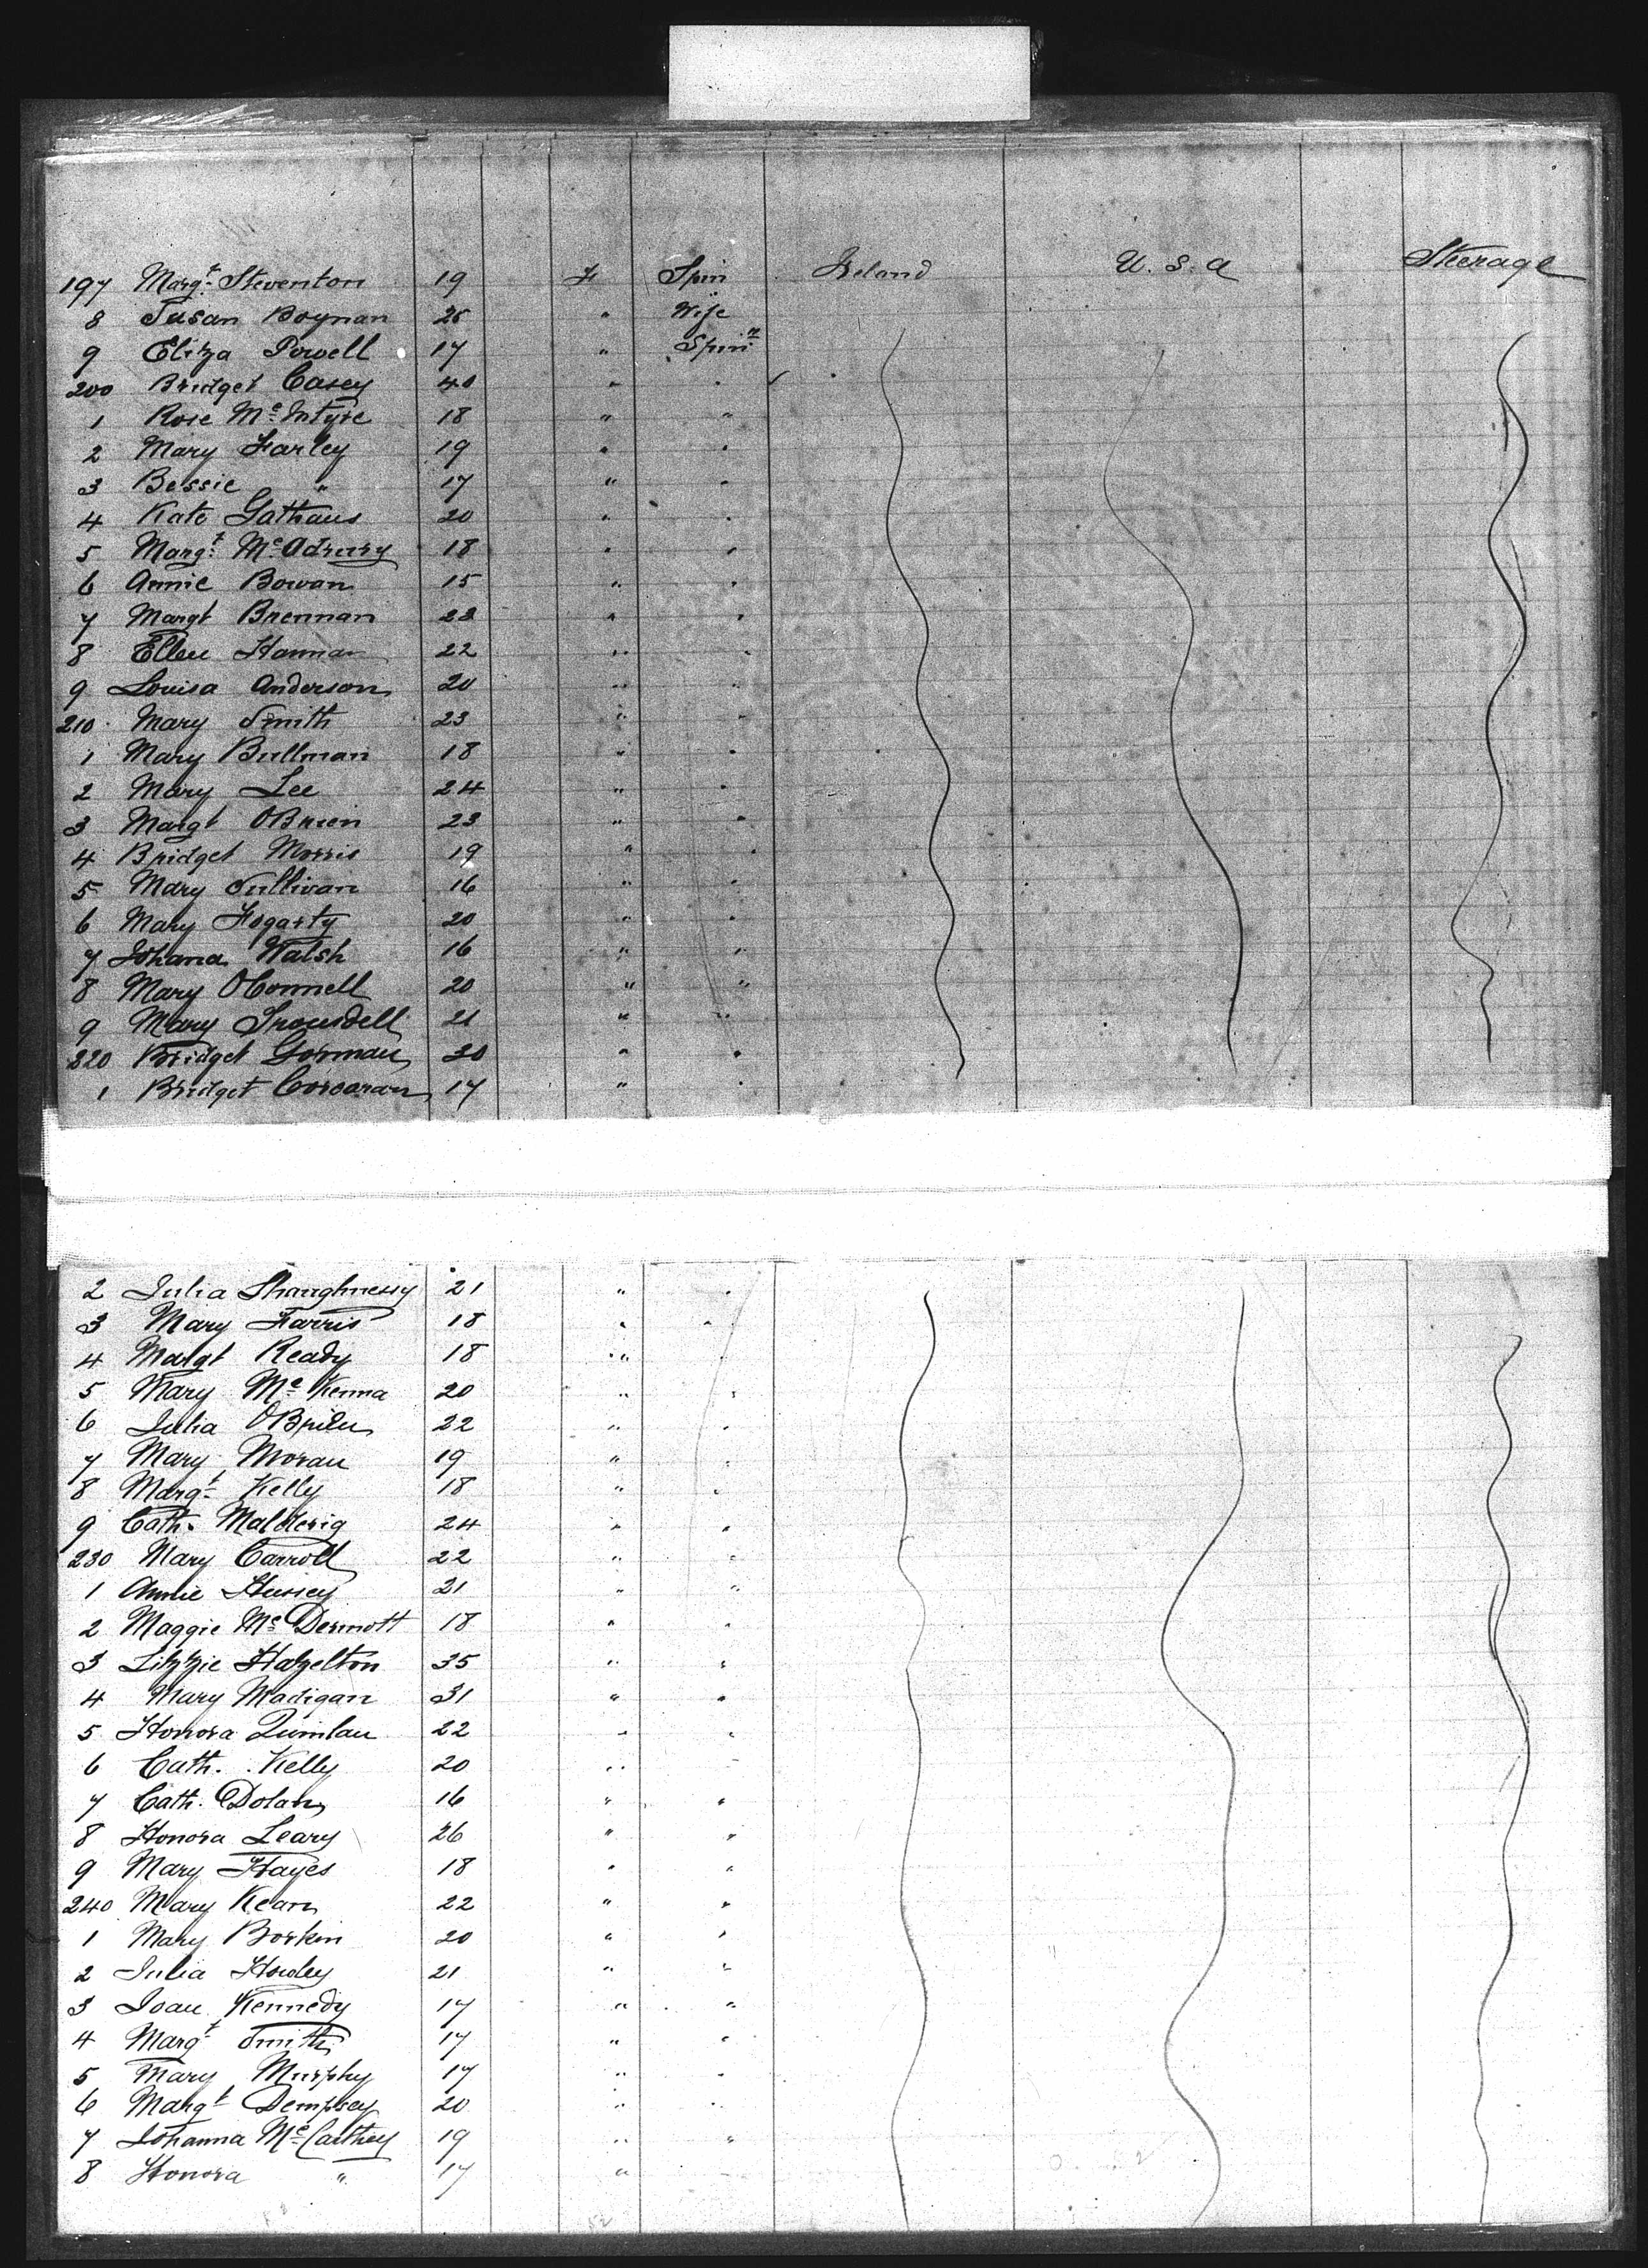 197 Margt Steventon 19 F Spin Ireland U.S.A Steerage
8 Susan Boynan 25 " Wife
9 Eliza Powell 17 " Spinr
200 Bridget Casey 40 " "
1 Rose McIntyre 18 " "
2 Mary Farley 19 " "
3 Bessie " 17 " "
4 Kate 20 " "
5 Margt 18 " "
6 Annie Bowan 15 " "
7 Margt Brennan 22 " "
8 Ellen Hannan 22 " "
9 Louisa Anderson 20 " "
210 Mary Smith 23 " "
1 Mary Bullman 18 " "
2 Mary Lee 24 " "
3 Margt OBrien 23 " "
4 Bridget Morris 19 " "
5 Mary Sullivan 16 " "
6 Mary Fogarty 20 " "
7 Johana Walsh 16 " "
8 Mary OConnell 20 " "
9 Mary Trousdell 21 " "
220 Bridget Gorman 20 " "
1 Bridget Corcoran 17 " "
2 Julia Shaughnessy 21 " "
3 Mary Farris 18 " "
4 Margt Ready 18 " "
5 Mary McKenna 20 " "
6 Julia OBrien 22 " "
7 Mary Moran 19 " "
8 Margt Kelly 18 " "
9 Cath. Malderig 24 " "
230 Mary Carroll 22 " "
1 Annie Hussey 21 " "
2 Maggie McDermott 18 " "
3 Lizzie Hazelton 35 " "
4 Mary Madigan 31 " "
5 Honora Quinlan 22 " "
6 Cath. Kelly 20 " "
7 Cath. Dolan 16 " "
8 Honora Leary 26 " "
9 Mary Hayes 18 " "
240 Mary Kean 22 " "
1 Mary Boskin 20 " "
2 Julia Howley 21 " "
3 Joan Kennedy 17 " "
4 Margt Smith 17 " "
5 Mary Murphy 17 " "
6 Margt Dempsey 20 " "
7 Johanna McCarthey 19 " "
8 Honora " 17 "